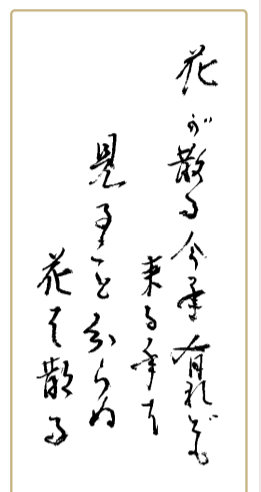 花が散る今年有れども
来る年も
見ることあらぬ
花は散る